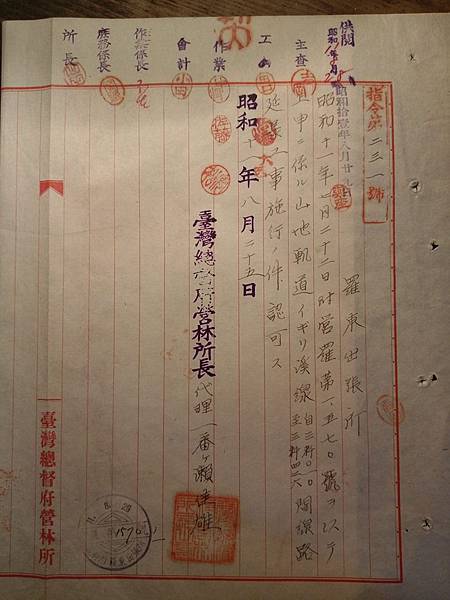 指令第二三一號
羅東出張所
昭和十一年 月二十二日附営羅第一、五七〇號ヲ以テ
上申ニ係ル山地軌道イキリ溪線 自三粁〇〇〇 至三粁四二六 間線路
延長工事施行ノ件認可ス
昭和十一年八月二十五日
臺灣總督府營林所長代理一番ヶ瀬佳雄
供閲
昭和拾壹年八月廿 日
主査
工務
作業
會計
作業係長
庶務係長
所長
臺灣總督府營林所